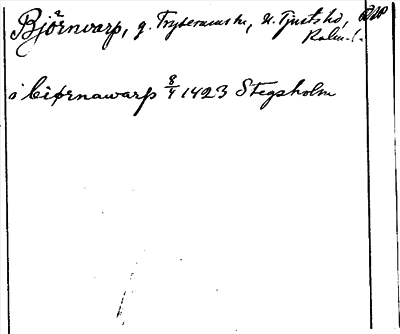 Björnvarp, g. Tryserums sn, N. Tjusts hd, SRP
Kalm. l.
i biørnawarp 8/4 1423 Stegsholm